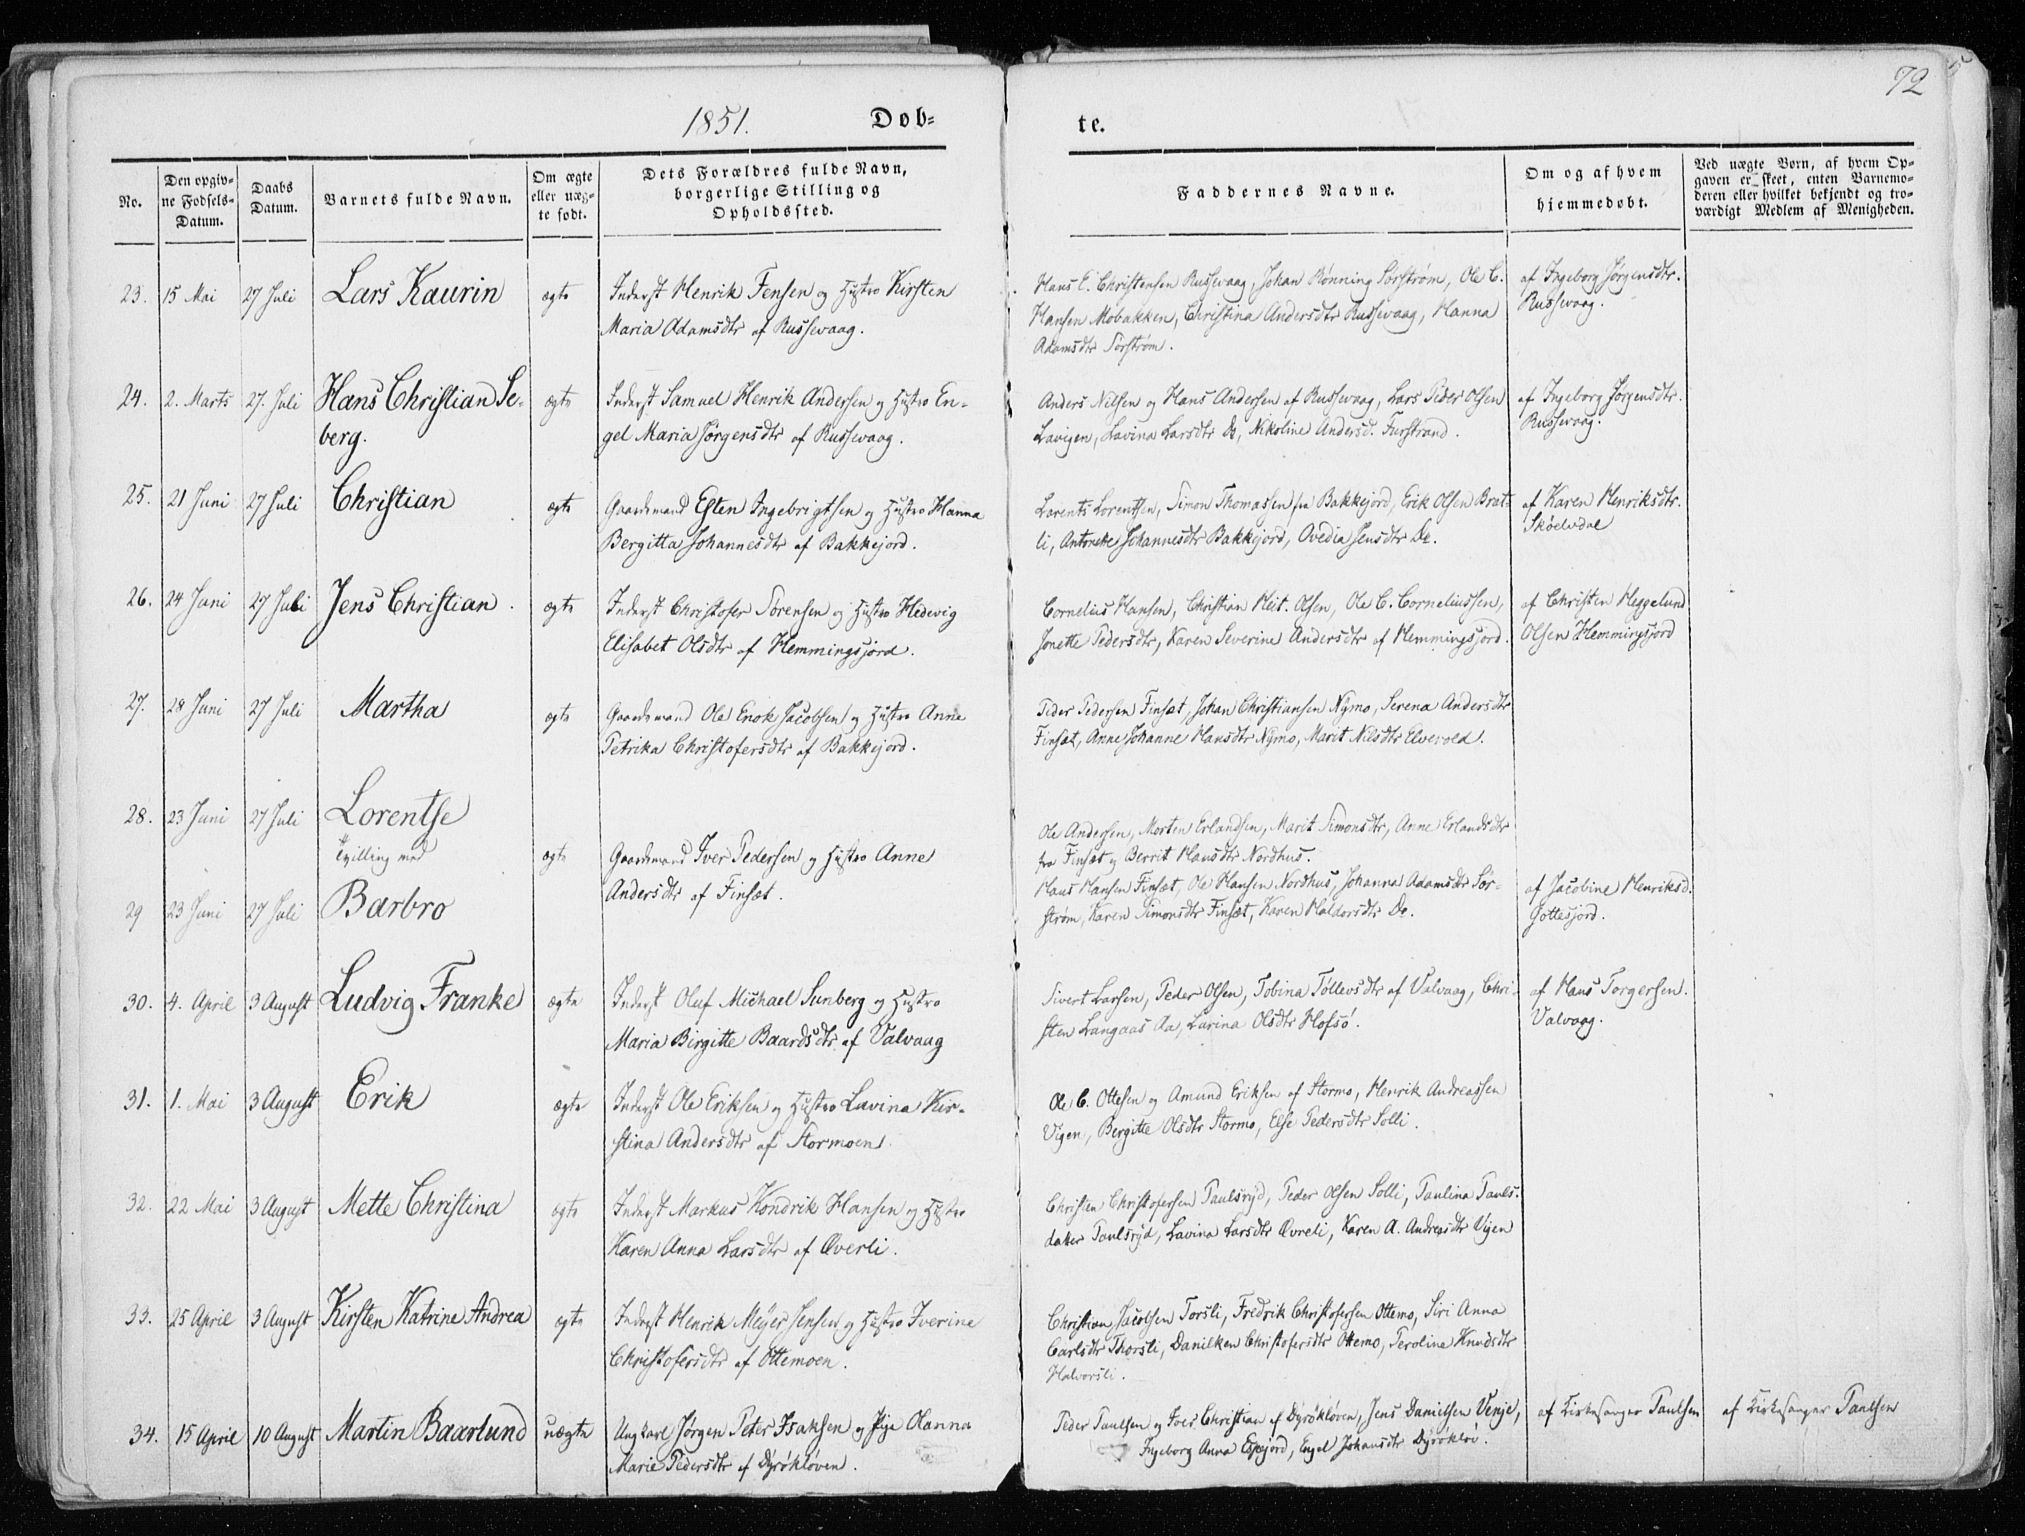 72
1851.
Døb-
te.
No.
Den opgiv-
ne Fødsels-
Datum.
Daabs
Datum.
Barnets fulde Navn.
Om ægte
eller uæg-
te født.
Dets Forældres fulde Navn,
borgerlige Stilling og
Opholdssted.
Faddernes Navne.
Om og af hvem
hjemmedøbt.
Ved uægte Børn, af hvem Op-
gaven er skeet, enten Barnemo-
deren eller hvilket bekjendt og tro-
værdigt Medlem af Menigheden.
23. 15 Mai 27 Juli Lars Kaurin ægte Inderst Henrik Jensen og Hustro Kirsten
Maria Adamsdtr af Russevaag.
Hans C. Christensen Russevaag, Johan Rønning Sørstrøm, Ole C.
Hansen Mobakken, Christina Andersdtr Russevaag, Hanna
Adamsdtr Sørstrøm.
af Ingeborg Jørgensdtr.
Russevaag.
24. 2. Marts 27. Juli Hans Christian Se-
berg.
ægte Inderst Samuel Henrik Andersen og Hustro En-
gel Maria Jørgensdtr af Russevaag.
Anders Nilsen og Hans Andersen af Russevaag, Lars Peder Olsen
Lavigen, Lavina Larsdtr Do, Nikoline Andersd. Furstrand.
af Ingeborg Jørgensdtr.
Russevaag.
25. 21 Juni 27 Juli Christian ægte Gaardmand Esten Ingebrigtsen og Hustro Hanna
Bergitta Johannesdtr af Bakkejord.
Lorents Lorentsen, Simon Thomassen fra Bakkejord, Erik Olsen Brat-
li, Antonette Johannesdtr Bakkejord, Ovedia Jensdtr Do.
af Karen Henriksdtr.
Skøelvdal
26. 24 Juni 27 Juli Jens Christian. ægte Inderst Christofer Sørensen og Hustro Hedevig
Elisabet Olsdtr af Hemmingsjord.
Cornelius Hansen, Christian Heit. Olsen, Ole C. Corneliussen,
Jonette Pedersdtr, Karen Severine Andersdtr af Hemmingsjord.
af Christen Heggelund
Olsen Hemmingsjord
27. 28 Juni 27 Juli Martha ægte Gaardmand Ole Enok Jacobsen og Hustro Anne
Petrika Christofersdtr af Bakkejord.
Peder Pedersen Finsæt, Johan Christiansen Nymo, Serena Andersdtr
Finsæt, Anne Johanne Hansdtr Nymo, Marit Nilsdtr Elvevold.
28. 23 Juni 27 Juli Lorentse
Tvilling med
ægte Gaardmand Iver Pedersen og Hustro Anne
Andersdtr af Finsæt.
Ole Andersen, Morten Erlandsen, Marit Simonsdtr, Anne Erlandsdtr
fra Finsæt og Berrit Hansdtr Nordhus.
29 23 Juni 27 Juli Barbro
Hans Hansen Finsæt, Ole Hansen Nordhus, Johanna Adamsdtr Sør-
strøm, Karen Simonsdtr Finsæt, Karen Haldorsdtr Do.
af Jacobine Henriksd.
Gottesjord.
30. 4. April 3 August Ludvig Franke ægte Inderst Oluf Michael Sunberg og Hustro
Maria Birgitte Baardsdtr af Valvaag
Sivert Larsen, Peder Olsen, Tobina Tøllevsdtr af Valvaag, Chri-
sten Langaas Aa, Lavina Olsdtr Hofsø.
af Hans Torgersen.
Valvaag.
31. 1. Mai 3 August Erik ægte Inderst Ole Eriksen og Hustro Lavina Kir-
stina Andersdtr af Stormoen.
Ole C. Ottesen og Amund Eriksen af Stormo, Henrik Andreassen
Vigen, Bergitte Olsdtr Stormo, Else Pedersdtr Solli.
32. 22 Mai 3 August Mette Christina ægte Inderst Markus Hendrik Hansen og Hustro
Karen Anna Larsdtr af Øverli.
Christen Christofersen Paulsryd, Peder Olsen Solli, Paulina Pauls-
datter Paulsryd, Lavina Larsdtr Øvreli, Karen A. Andreasdtr Vigen
33. 25 April 3 August Kirsten Katrine Andrea ægte Inderst Henrik Meyer Jensen og Hustro Iverine
Christofersdtr af Ottemoen.
Christian Jacobsen Torsli, Fredrik Christofersen Ottemo, Siri Anna
Carlsdtr Thorsli, Danilken Christofersdtr Ottemo, Peroline Knudsdtr
Halvorsli.
34. 15 April 10 August Martin Baarlund uægte Ungkarl Jørgen Peter Isaksen og Pige Hanna
Marie Pedersdtr af Dyrøkløven.
Peder Paulsen og Iver Christian af Dyrøkløven, Jens Danielsen Vinje,
Ingeborg Anna Espejord, Engel Johansdtr Dyrøkløv.
af Kirkesanger Paulsen
af Kirkesanger Paulsen